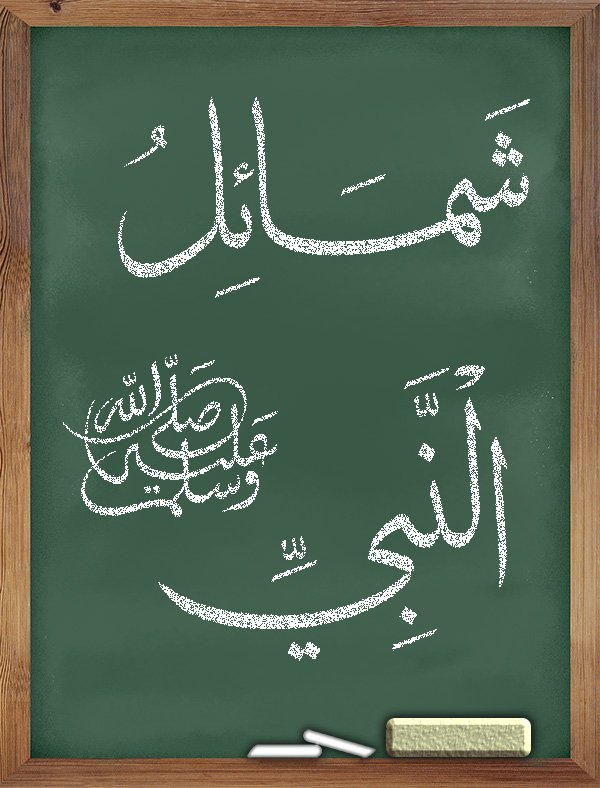 شَمَائِلُ
النَّبِيِّ صَلَّى اللّٰهُ عَلَيْهِ وَسَلَّمَ